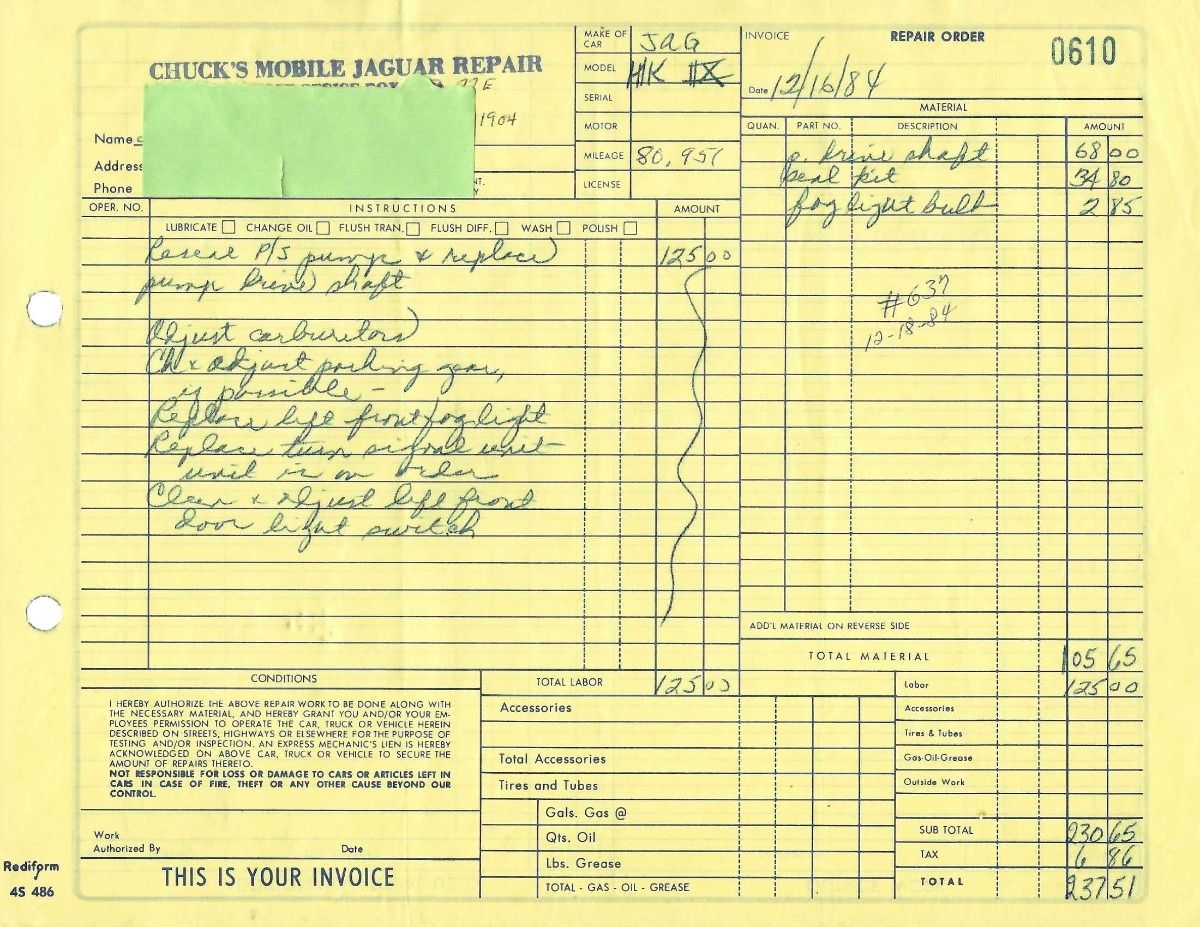 CHUCK'S MOBILE JAGUAR REPAIR
1904
Name
Address
Phone
MAKE OF CAR JAG
MODEL MK IX
SERIAL
MOTOR
MILEAGE 80,951
LICENSE
INVOICE REPAIR ORDER 0610
Date 12/16/84
MATERIAL
QUAN. PART NO. DESCRIPTION AMOUNT
p. drive shaft 68 00
seal kit 34 80
fog light bulb 2 85
#637
12-18-84
OPER. NO. INSTRUCTIONS AMOUNT
LUBRICATE CHANGE OIL FLUSH TRAN. FLUSH DIFF. WASH POLISH
Reseal P/S pump & replace 125 00
pump drive shaft
Adjust carburetors
Ck & adjust parking gear,
if possible -
Replace left front fog light
Replace turn signal unit
unit is on order
Clean & adjust left front
door light switch
ADD'L MATERIAL ON REVERSE SIDE
TOTAL MATERIAL 105 65
CONDITIONS
I HEREBY AUTHORIZE THE ABOVE REPAIR WORK TO BE DONE ALONG WITH
THE NECESSARY MATERIAL, AND HEREBY GRANT YOU AND/OR YOUR EM-
PLOYEES PERMISSION TO OPERATE THE CAR, TRUCK OR VEHICLE HEREIN
DESCRIBED ON STREETS, HIGHWAYS OR ELSEWHERE FOR THE PURPOSE OF
TESTING AND/OR INSPECTION. AN EXPRESS MECHANIC'S LIEN IS HEREBY
ACKNOWLEDGED ON ABOVE CAR, TRUCK OR VEHICLE TO SECURE THE
AMOUNT OF REPAIRS THERETO.
NOT RESPONSIBLE FOR LOSS OR DAMAGE TO CARS OR ARTICLES LEFT IN
CARS IN CASE OF FIRE, THEFT OR ANY OTHER CAUSE BEYOND OUR
CONTROL.
Work
Authorized By Date
THIS IS YOUR INVOICE
Rediform
4S 486
TOTAL LABOR 125 00
Accessories
Total Accessories
Tires and Tubes
Gals. Gas @
Qts. Oil
Lbs. Grease
TOTAL - GAS - OIL - GREASE
Labor 125 00
Accessories
Tires & Tubes
Gas-Oil-Grease
Outside Work
SUB TOTAL 230 65
TAX 6 86
TOTAL 237 51